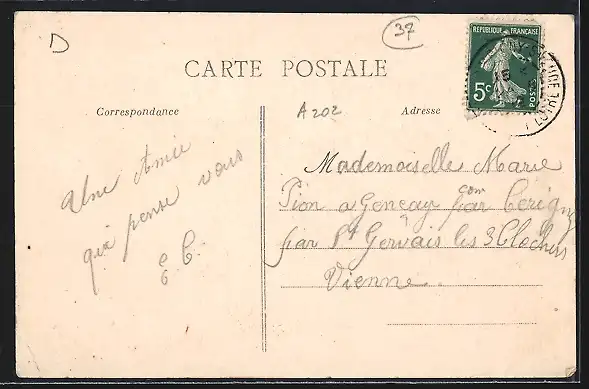 D
37
RÉPUBLIQUE FRANÇAISE
5c
POSTES
LOIRE
CARTE POSTALE
Correspondance
A202
Adresse
Une Amie
qui pense vous
E C.
Mademoiselle Marie
Pion a Gençay par
par St Gervais les 3 Clochers
Vienne